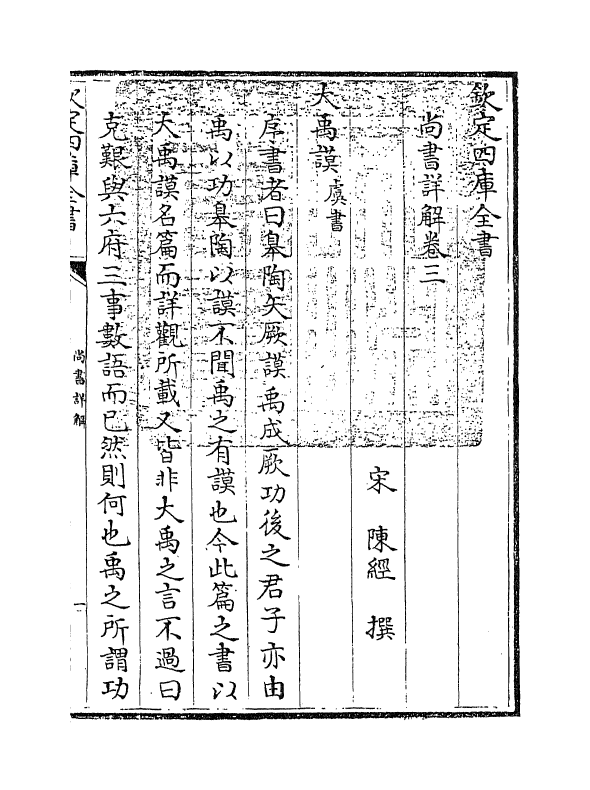 欽定四庫全書
尚書詳解卷三
宋 陳經 撰
大禹謨 虞書
序書者曰皋陶矢厥謨禹成厥功後之君子亦由
禹以功皋陶以謨不聞禹之有謨也今此篇之書以
大禹謨名篇而詳觀所載又皆非大禹之言不過曰
克艱與六府三事數語而已然則何也禹之所謂功
欽定四庫全書
尚書詳解
一